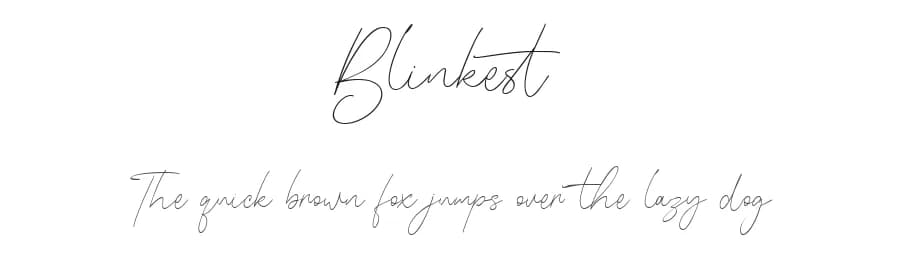 Blinkest
The quick brown fox jumps over the lazy dog